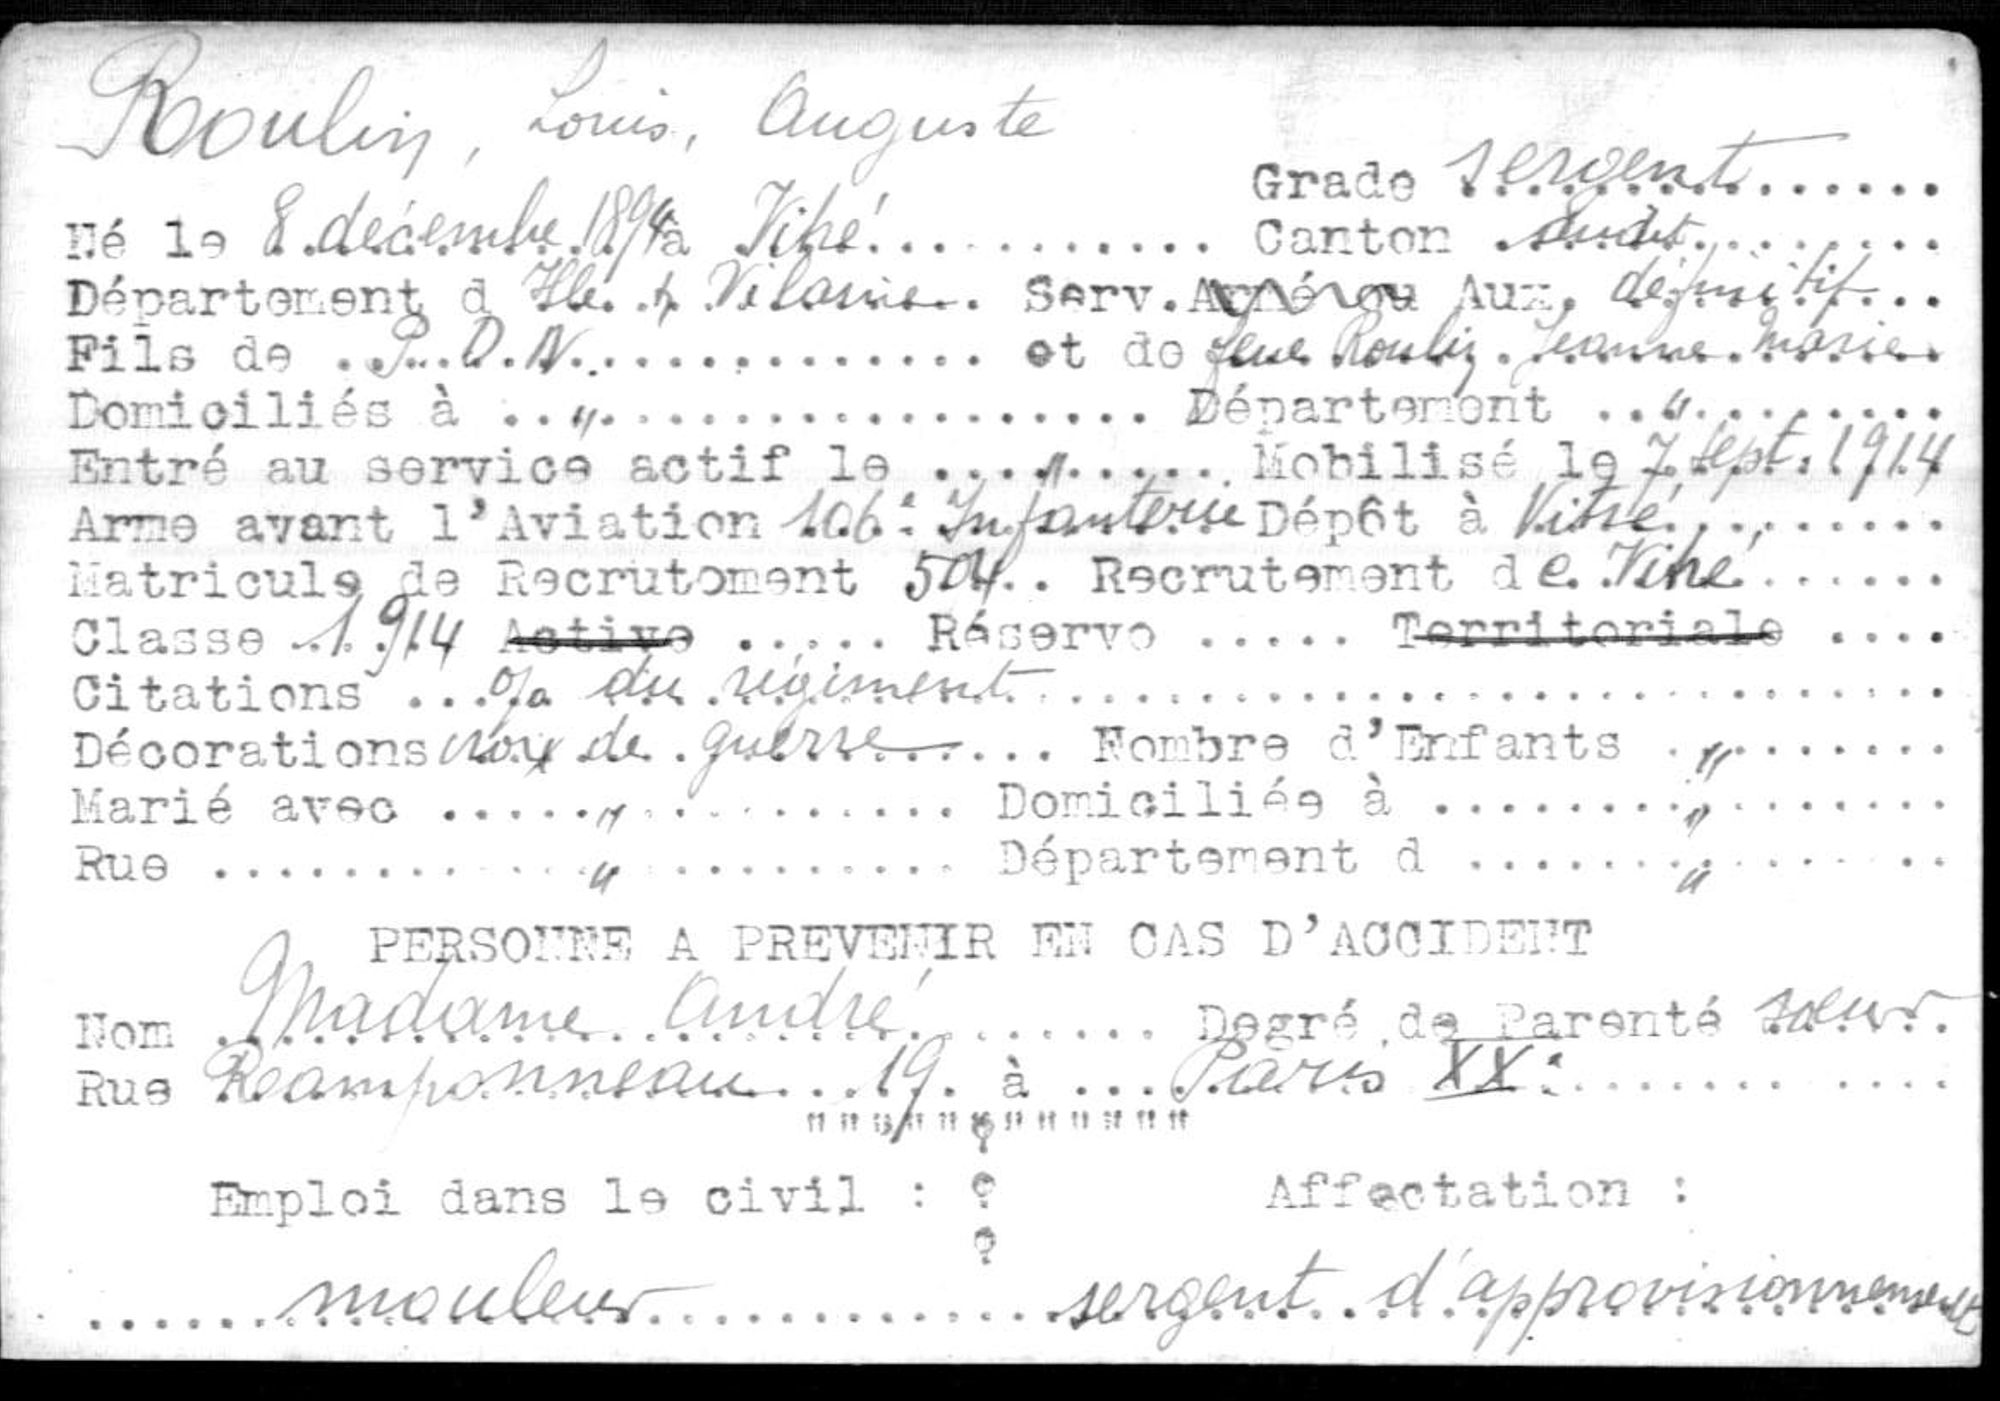 Roulin, Louis, Auguste
Grade sergent
Né le 8 décembre 1894 à Vitré Canton
Département d Ille & Vilaine Serv. Armé ou Aux. définitif
Fils de P.D.N. et de feue Roulin Jeanne Marie
Domiciliés à " Département "
Entré au service actif le " Mobilisé le 7 sept. 1914
Arme avant l'Aviation 106e Infanterie Dépôt à Vitré
Matricule de Recrutement 504 Recrutement de Vitré
Classe 1914 Active ..... Réserve ..... Territoriale ....
Citations du régiment
Décorations croix de guerre Nombre d'Enfants "
Marié avec " Domiciliés à "
Rue " Département d "
PERSONNE A PREVENIR EN CAS D'ACCIDENT
Nom Madame André Degré de Parenté soeur
Rue Ramponneau 19 à Paris XXe
""""""""""""
Emploi dans le civil : Affectation :
mouleur sergent d'approvisionnement